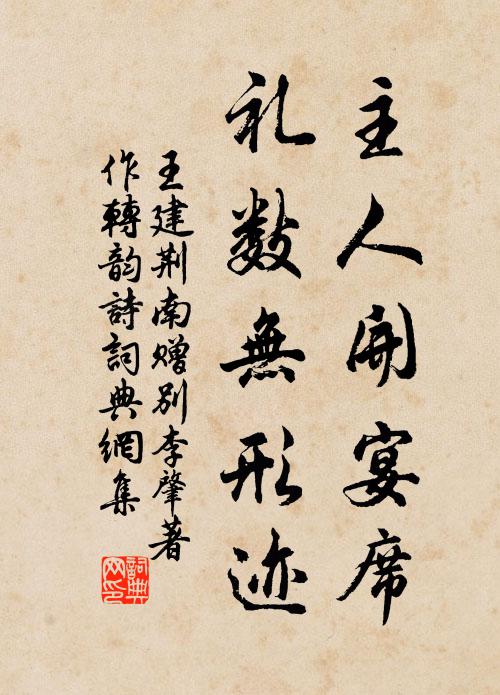 主人開宴席
礼数無形迹
王建荆南赠别李肇著
作轉韵詩詞典網集
詞典
网印